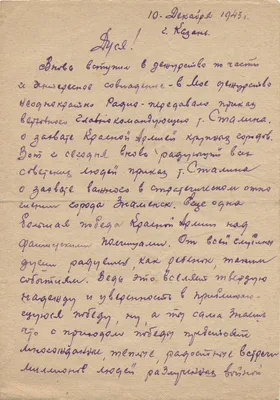 10 - Декабря 1943 г.
г. Казань.
Дуся!
Вновь вступил в дежурство по части
и интересное совпадение - в мое дежурство
неоднократно Радио - передавало приказ
верховного Главнокомандующего т. Сталина,
о захвате Красной Армией крупных городов.
Вот и сегодня вновь радующий всех
советских людей приказ т. Сталина
о захвате важного в стратегическом отно
шении города Знаменск. Еще одна
большая победа Красной Армии над
фашистскими полчищами. От всей глубины
души радуешся, как ребенок, таким
событиям. Ведь это вселяет твердую
надежду и уверенность в приближаю-
щуюся победу, ну а ты сама знаешь
что с приходом победы предстоят
многочисленные, теплые, радостные встречи
миллионов людей разлученных войной